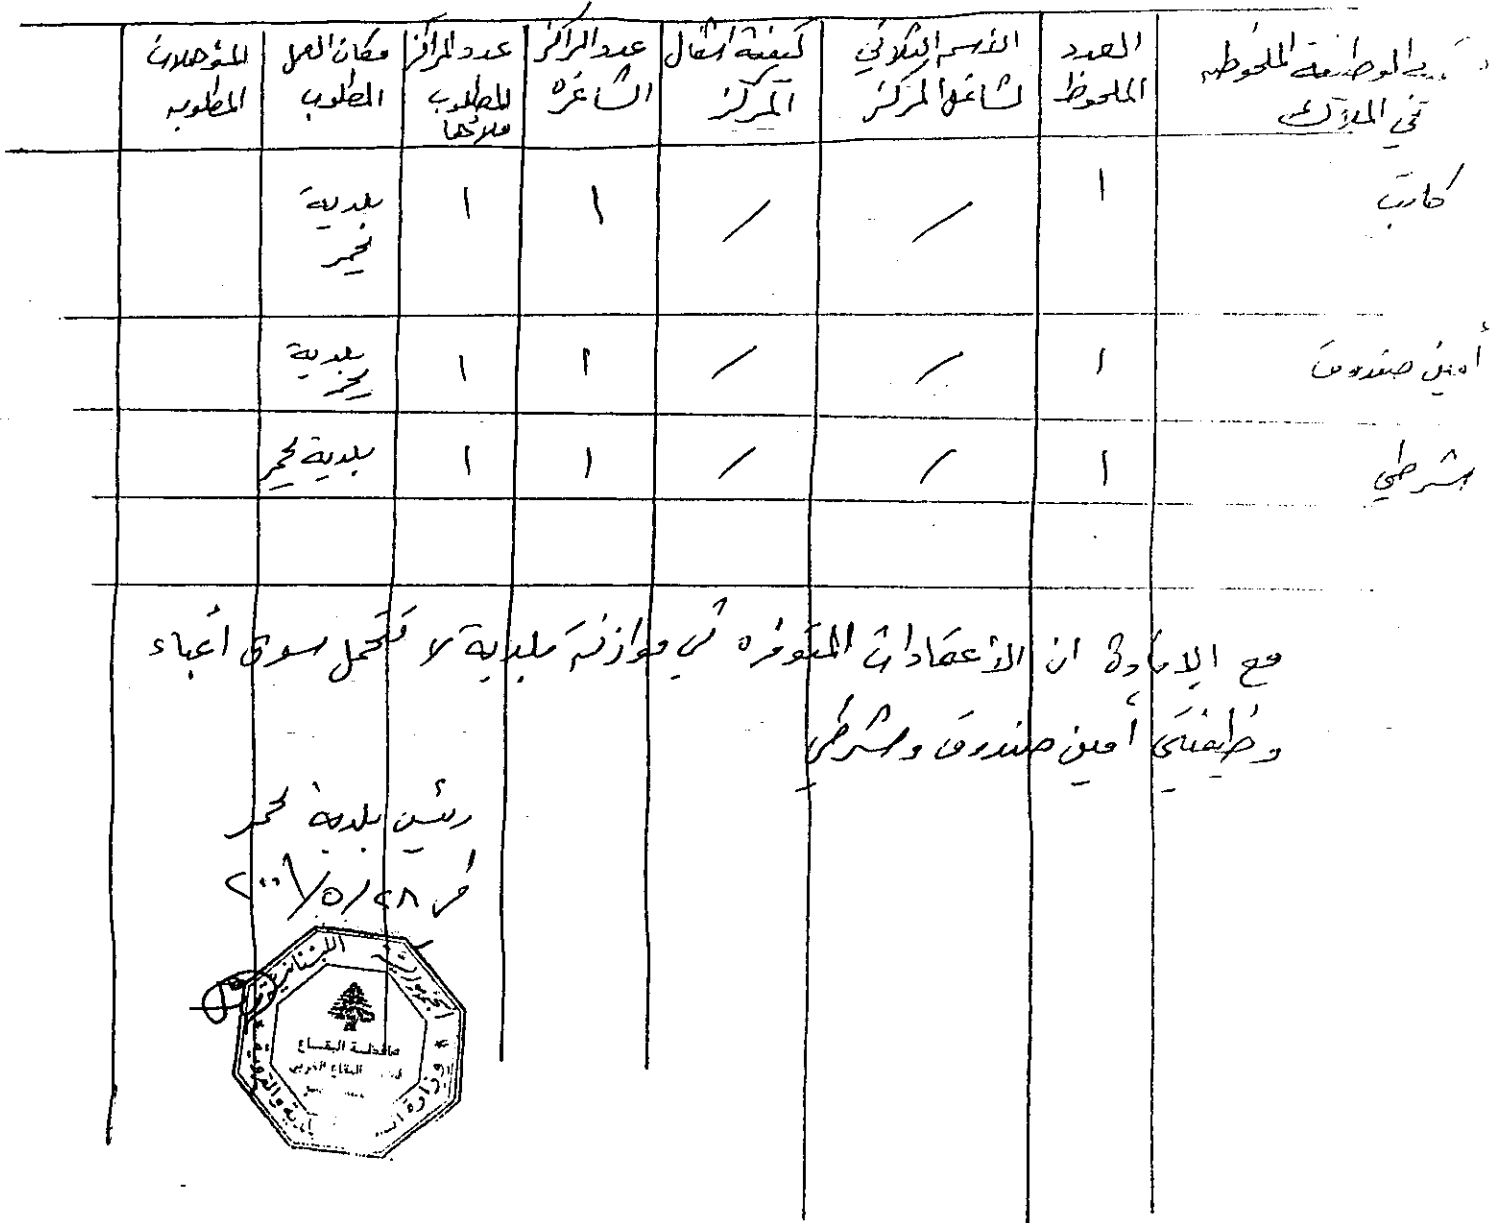 الوظيفة الملحوظه في الملاك | العدد الملحوظ | الاسم الثلاثي لشاغل المركز | كيفية اشغال المركز | عدد المراكز الشاغره | عدد المراكز المطلوب ملائها | مكان العمل المطلوب | المؤهلات المطلوبه
كاتب | ١ | / | / | ١ | ١ | بلدية لحمر
أمين صندوق | ١ | / | / | ١ | ١ | بلدية لحمر
شرطي | ١ | / | / | ١ | ١ | بلدية لحمر
مع الإفادة ان الأعتمادات المتوفره في موازنة بلدية لا تتحمل سوى أعباء
وظيفتي أمين صندوق وشرطي
رئيس بلدية لحمر
٢٨/٥/٢٠٠
الجمهورية اللبنانية
وزارة
والقروية
محافظة البقاع
البقاع الغربي